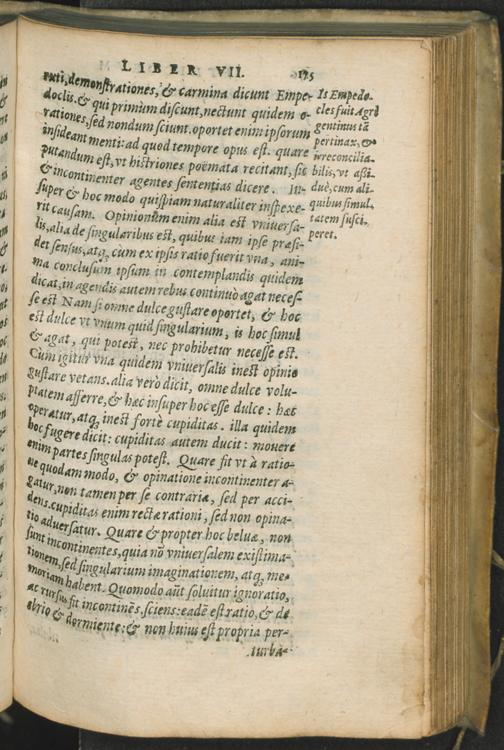 LIBER VII. 175
ruti, demonstrationes, & carmina dicunt Empe-
doclis. & qui primùm discunt, nectunt quidem o-
rationes, sed nondum sciunt. oportet enim ipsorum
insideant menti: ad quod tempore opus est. quare
putandum est, vt histriones poëmata recitant, sic
& incontinenter agentes sententias dicere. In-
super & hoc modo quispiam naturaliter inspexe-
rit causam. Opinionum enim alia est vniuersa-
lis, alia de singularibus est, quibus iam ipse præsi-
det sensus, atq, cùm ex ipsis ratio fuerit vna, ani-
ma conclusum ipsum in contemplandis quidem
dicat, in agendis autem rebus continuò agat neces-
se est Nam si omne dulce gustare oportet, & hoc
est dulce vt vnum quid singularium, is hoc simul
& agat, qui potest, nec prohibetur necesse est.
Cum igitur vna quidem vniuersalis inest opinio
gustare vetans. alia verò dicit, omne dulce volu-
ptatem afferre, & hæc insuper hoc esse dulce: hæc
operatur, atq, inest fortè cupiditas. illa quidem
hoc fugere dicit: cupiditas autem ducit: mouere
enim partes singulas potest. Quare fit vt à ratio-
ne quodam modo, & opinatione incontinenter a-
gatur, non tamen per se contraria, sed per acci-
dens. cupiditas enim rectæ rationi, sed non opina-
tio aduersatur. Quare & propter hoc beluæ, non
sunt incontinentes, quia nō vniuersalem existima-
tionem, sed singularium imaginationem, atq, me-
moriam habent. Quomodo aūt soluitur ignoratio,
ac rursus fit incontinēs, sciens: eadē est ratio, & de
ebrio & dormiente: & non huius est propria per-
turba-
Is Empedo-
cles fuit Agri
gentinus tā
pertinax, &
irreconcilia-
bilis, vt assi-
duè, cum ali-
quibus simul-
tatem susci-
peret.